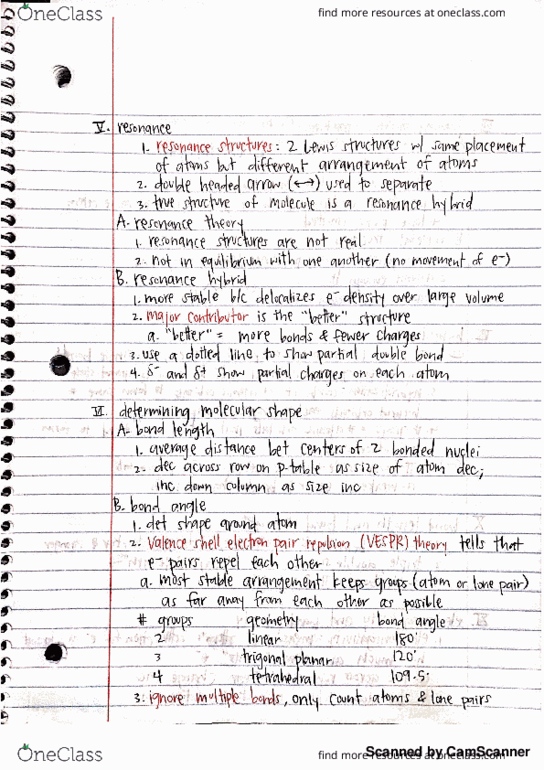 OneClass
find more resources at oneclass.com
V. resonance
1. resonance structures: 2 Lewis structures w/ same placement
of atoms but different arrangement of atoms
2. double headed arrow (↔) used to separate
3. true structure of molecule is a resonance hybrid
A. resonance theory
1. resonance structures are not real
2. not in equilibrium with one another (no movement of e⁻)
B. resonance hybrid
1. more stable b/c delocalizes e⁻ density over large volume
2. major contributor is the "better" structure
a. "better" = more bonds & fewer charges
3. use a dotted line to show partial double bond
4. δ⁻ and δ⁺ show partial charges on each atom
VI. determining molecular shape
A. bond length
1. average distance bet centers of 2 bonded nuclei
2. dec across row on p-table as size of atom dec;
inc down column as size inc
B. bond angle
1. det shape around atom
2. Valence shell electron pair repulsion (VESPR) theory tells that
e⁻ pairs repel each other
a. most stable arrangement keeps groups (atom or lone pair)
as far away from each other as possible
# groups geometry bond angle
2 linear 180°
3 trigonal planar 120°
4 tetrahedral 109.5°
3. ignore multiple bonds, only count atoms & lone pairs
OneClass
find more resources at oneclass.com
Scanned by CamScanner